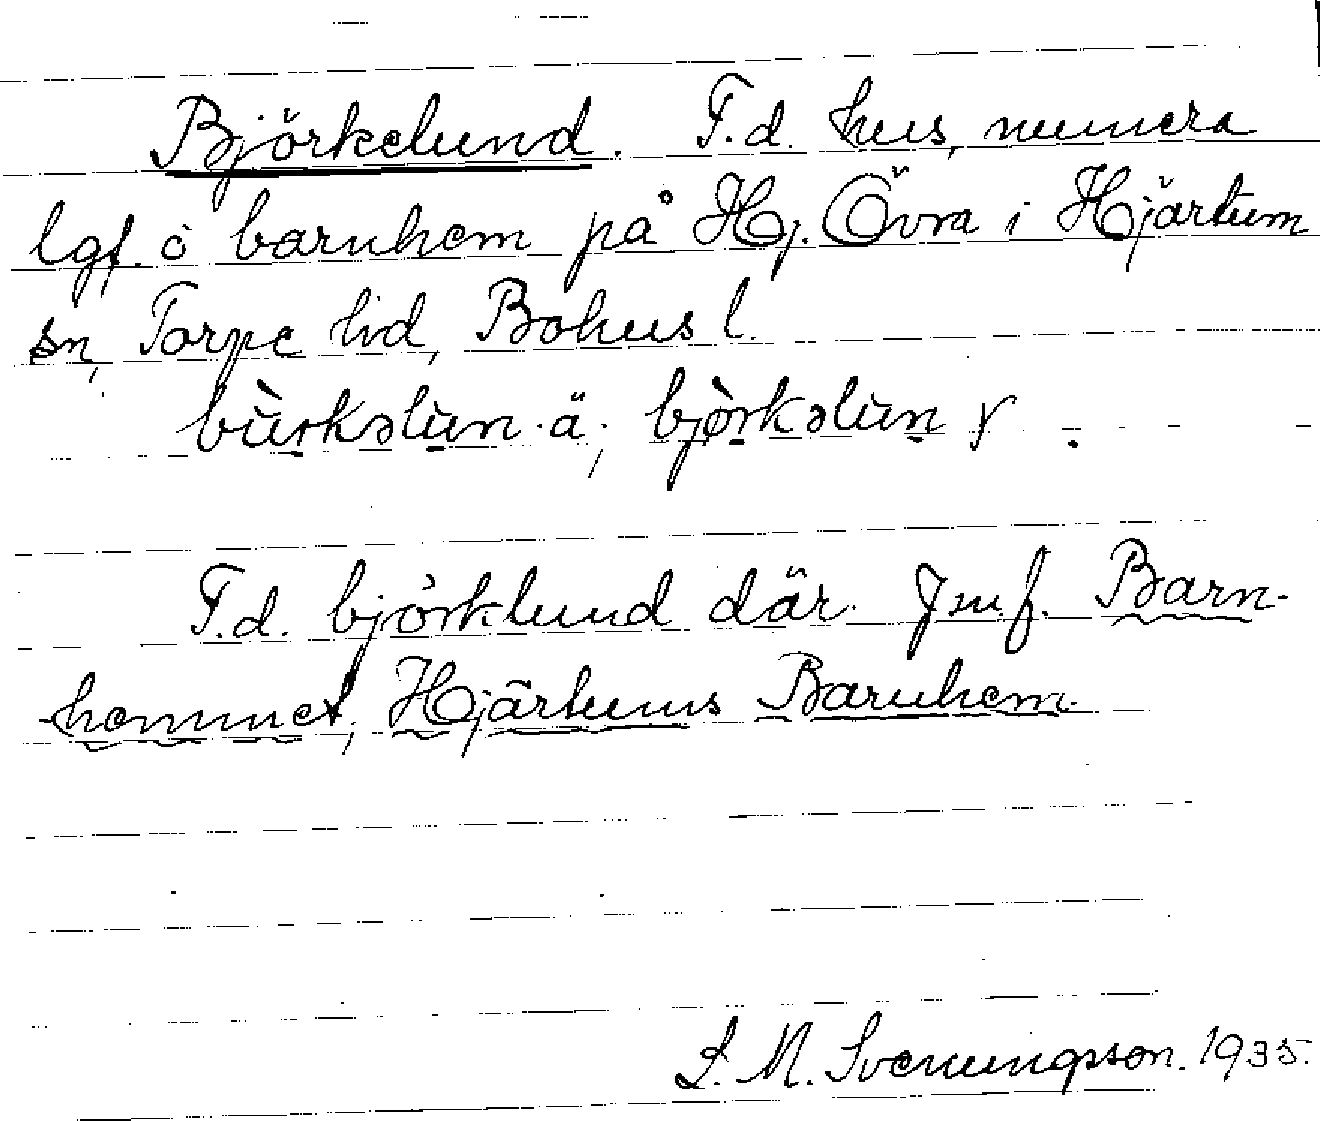 Björkelund. F.d. hus, numera
lgf. o barnhem på Hj. Övra i Hjärtum
sn, Torpe hd, Bohus l.
bùrkəlùn. ä; bjòrkəlùn y.
F.d. björklund där. Jmf. Barn-
hemmet, Hjärtums Barnhem.
S. M. Svenningsson. 1935.